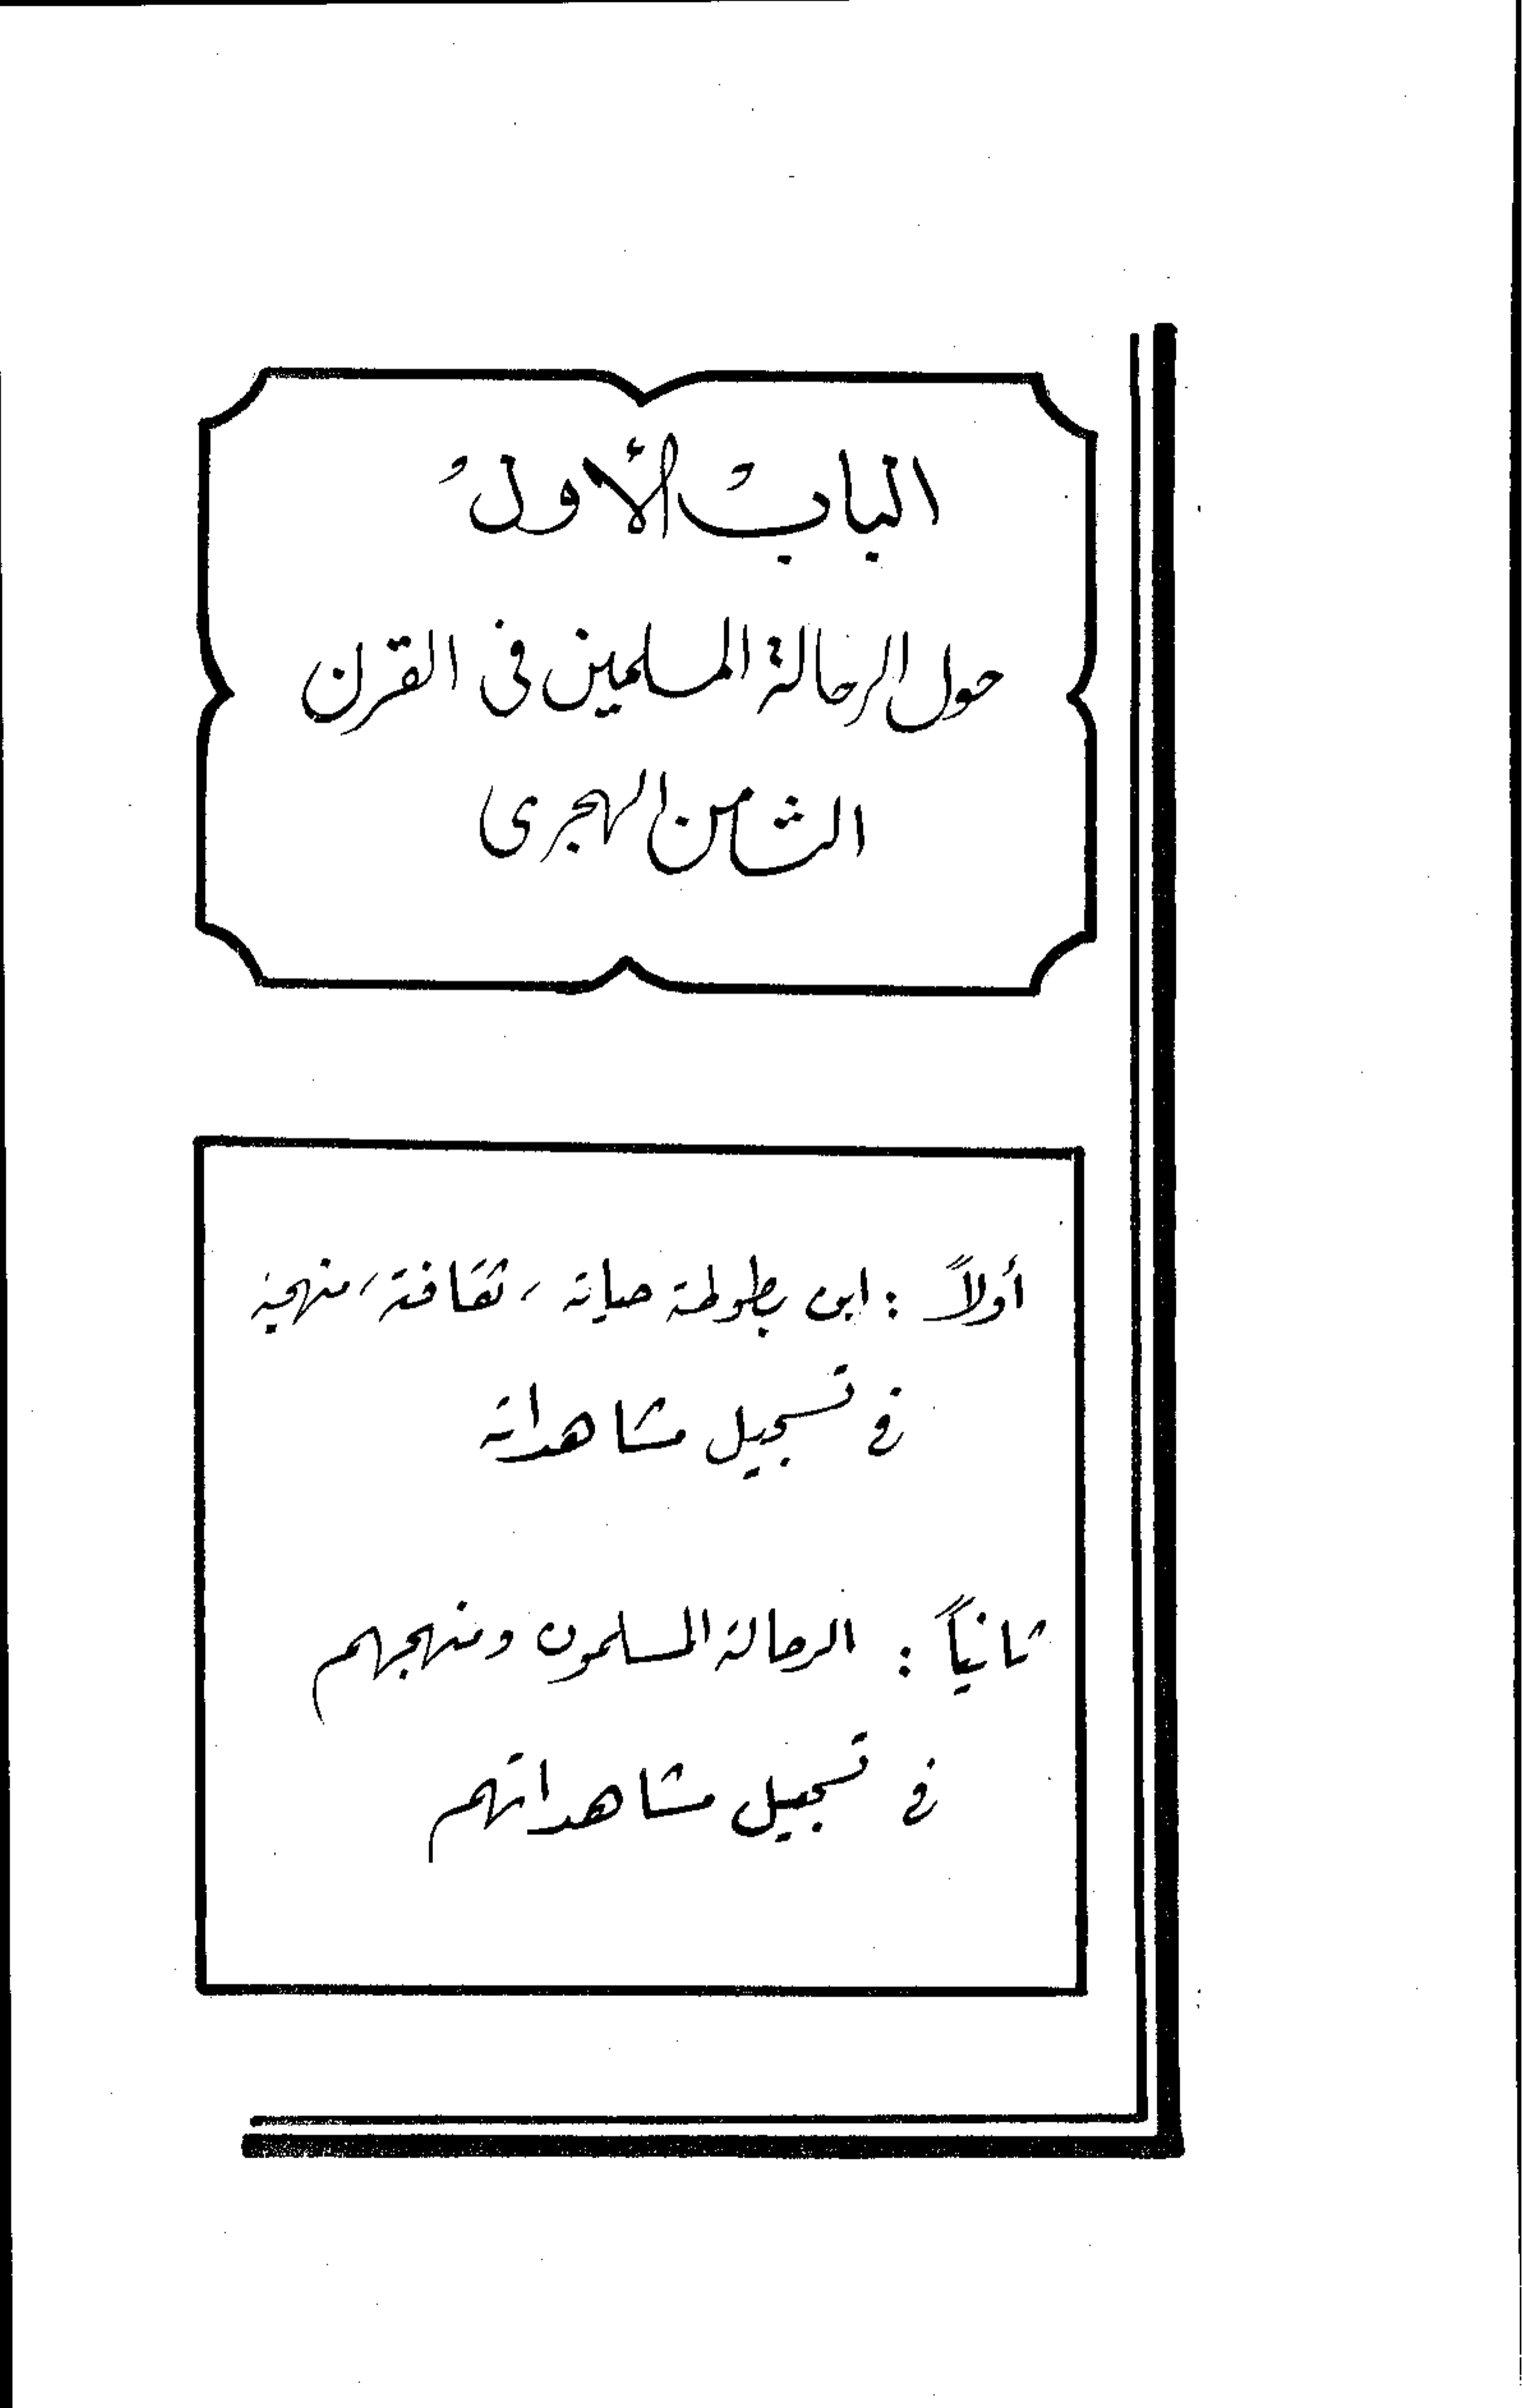 الباب الأول
حول الرحالة المسلمين فى القرن
الثامن الهجرى
أولاً : ابن بطوطة حياته ، ثقافته ، منهجه
في تسجيل مشاهداته
ثانياً : الرحالة المسلمون ومنهجهم
في تسجيل مشاهداتهم